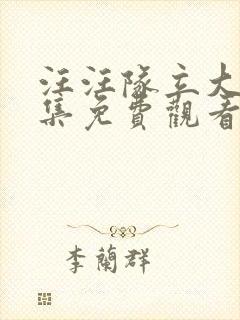 汪汪隊立大
集免費觀看
李蘭群